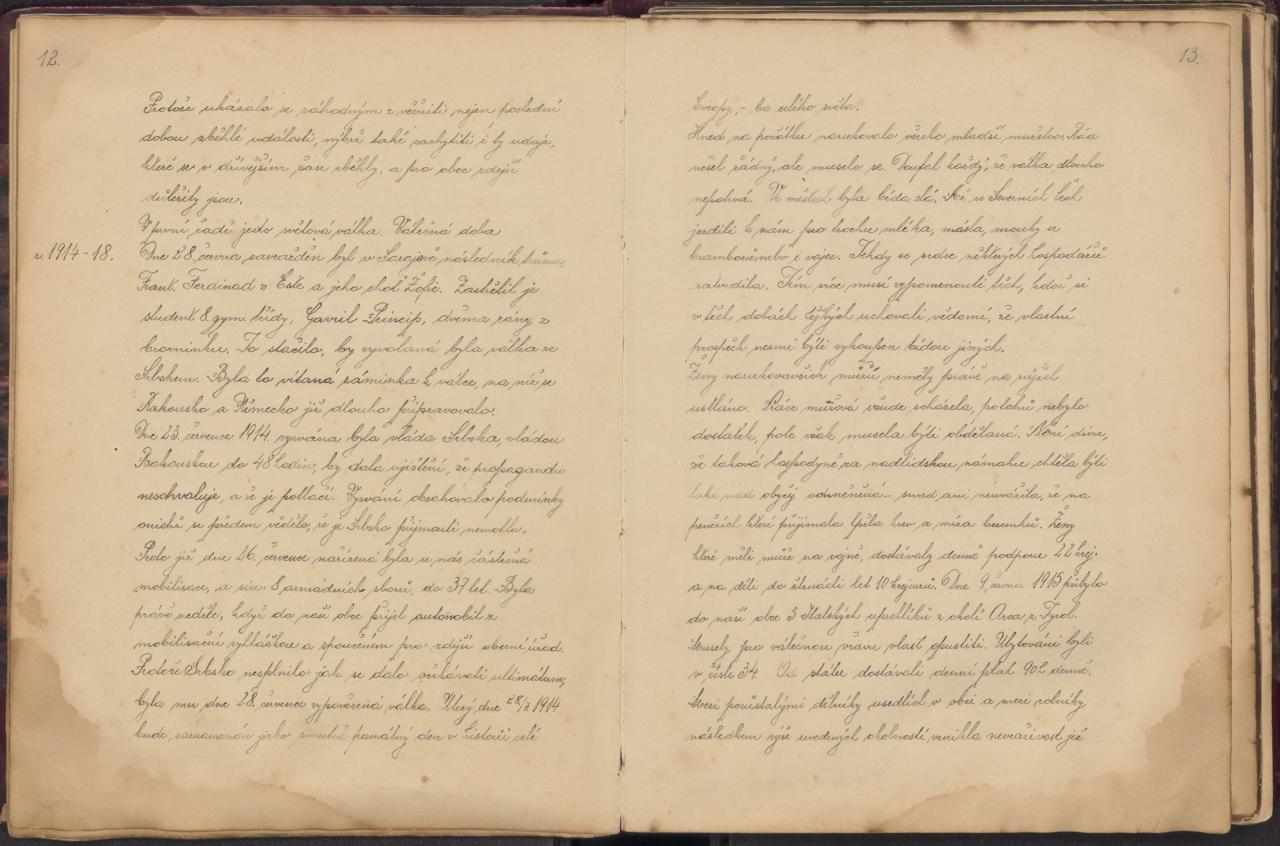 12.
Protože ukázalo se záhodným zvěčniti nejen poslední
dobou zběhlé události, nýbrž také zachytiti i ty údaje,
které se v dřívějším čase zběhly, a pro obec zdejší
důležity jsou.
V první řadě jesto světová válka. Válečná doba
r. 1914-18.
Dne 28. června zavražděn byl v Sarajevě následník trůnu,
Frant. Ferdinad z Este a jeho choť Žofie. Zastřelil je
student 8. gym. třídy, Gavril Princip, dvěma rány z
browninku. To stačilo, by vyvolaná byla válka ze
Srbskem. Byla to vítaná záminka k válce, na níž se
Rakousko a Německo již dlouho připravovalo.
Dne 23. července 1914. vyzvána byla vláda Srbska, vládou
Rakouskou do 48 hodin, by dala ujištění, že propagandu
neschvaluje, a že ji potlačí. Vyzvání obsahovalo podmínky
onichž se předem vědělo, že je Srbsko přijmouti nemohlo.
Proto již dne 26. července nařízená byla u nás částečná
mobilisace, a sice 8 armádních sborů, do 37 let. Byla
právě neděle, když do naší obce přijel automobil z
mobilisační vyhláškou a spoučením pro zdejší obecní úřad.
Protože Srbsko nesplnilo jak se dalo očekávati ultimátum,
byla mu dne 28. července vypovězená válka. Úterý, dne 28/7. 1914
bude zaznamenán jako smutně památný den v historii celé
13.
Evropy, - ba celého světa.
Hned na počátku narukovalo všecko mladší mužstvo. Rád
nešel žádný, ale muselo se. Doufal každý, že válka dlouho
nepotrvá. Ve městech byla bída zlá. Až ze Severních Čech
jezdili k nám pro trochu mléka, másla, mouky a
bramborů nebo i vejce. Tehdy se srdce některých hospodářů
zatvrdila. Tím více musí vzpomenouti těch, kdož si
v těch dobách těžkých uchovali vědomí, že vlastní
prospěch nesmí býti vykoupen bídou jiných.
Ženy narukovavších mužů neměly právě na růžích
ustláno. Práce mužová všude scházela, potahů nebylo
dostatek, pole však musela býti obdělaná. Není divu,
že taková hospodyně za nadlidskou námahu chtěla býti
také nad obyčej odměněná - snad ani neuvážila, že na
penězích které přijímala lpěla krev a míza bezemků. Ženy
které měli muže na vojně, dostávaly denně podporu 22 krej.
a na děti do čtrnácti let 10 krejcarů. Dne 9. června 1915 přibylo
do naší obce 5 Italských uprchlíků z okolí Arca z Tyrol.
Musely pro válečnou vřavu vlast opustiti. Ubytováni byli
v čísle 34. Od státu dostávali denní plat 90h denně.
Mezi pozůstalými dělníky usedlích v obci a mezi rolníky
následkem výše uvedených okolností, vznikla nevraživost již